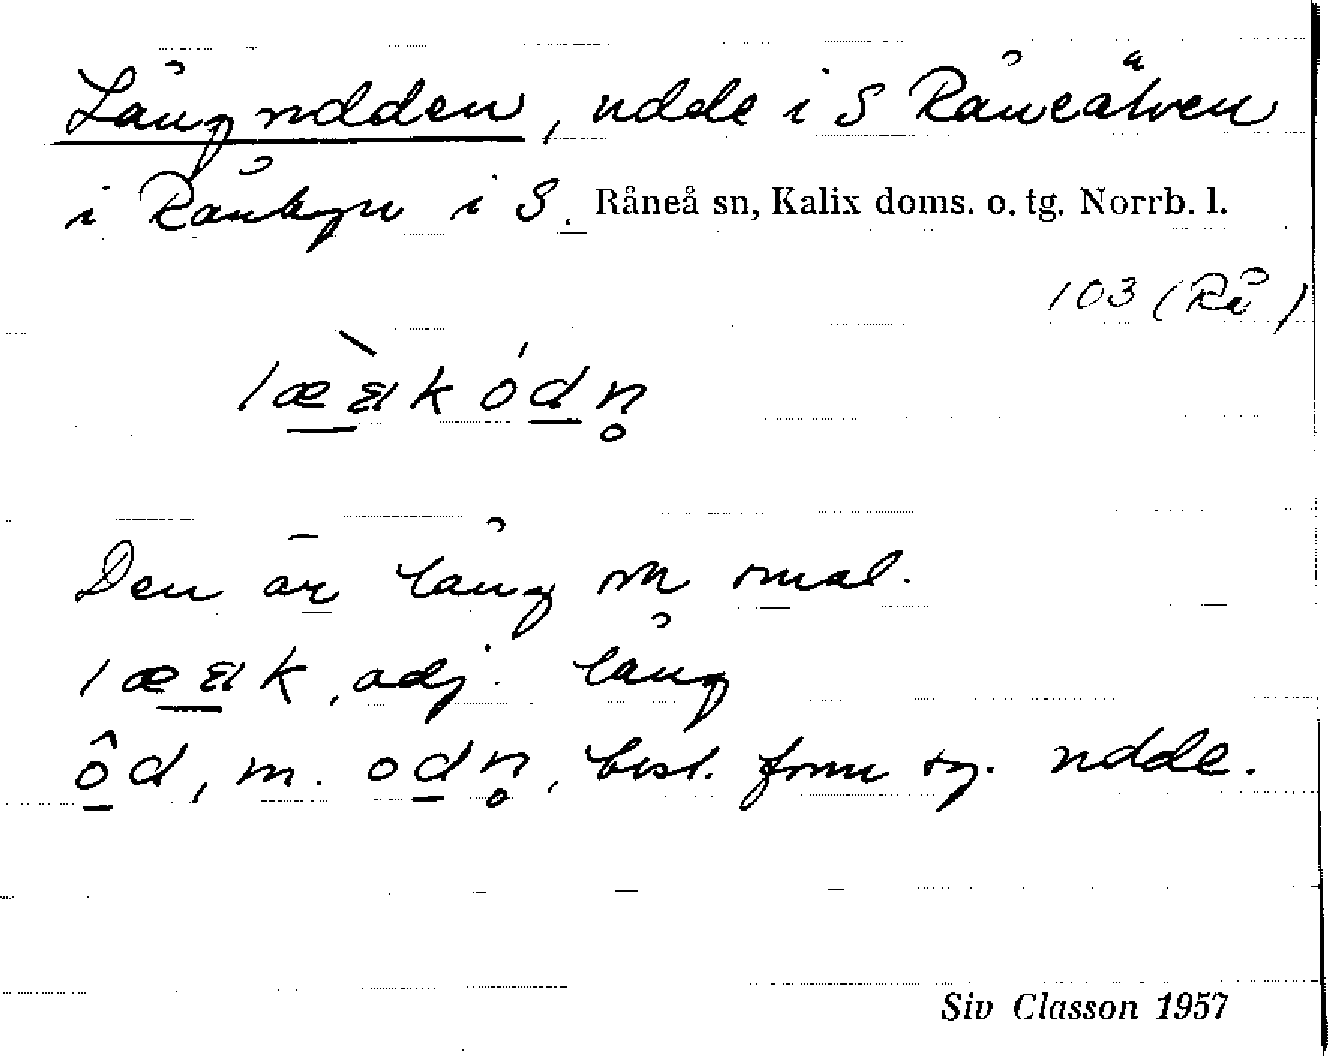 Långudden, udde i S Råneälven
i Rånbyn i S. Råneå sn, Kalix doms. o. tg. Norrb. l.
103 (Rå)
Den är lång och smal.
adj. lång
m. best. form sg. udde.
Siv Classon 1957